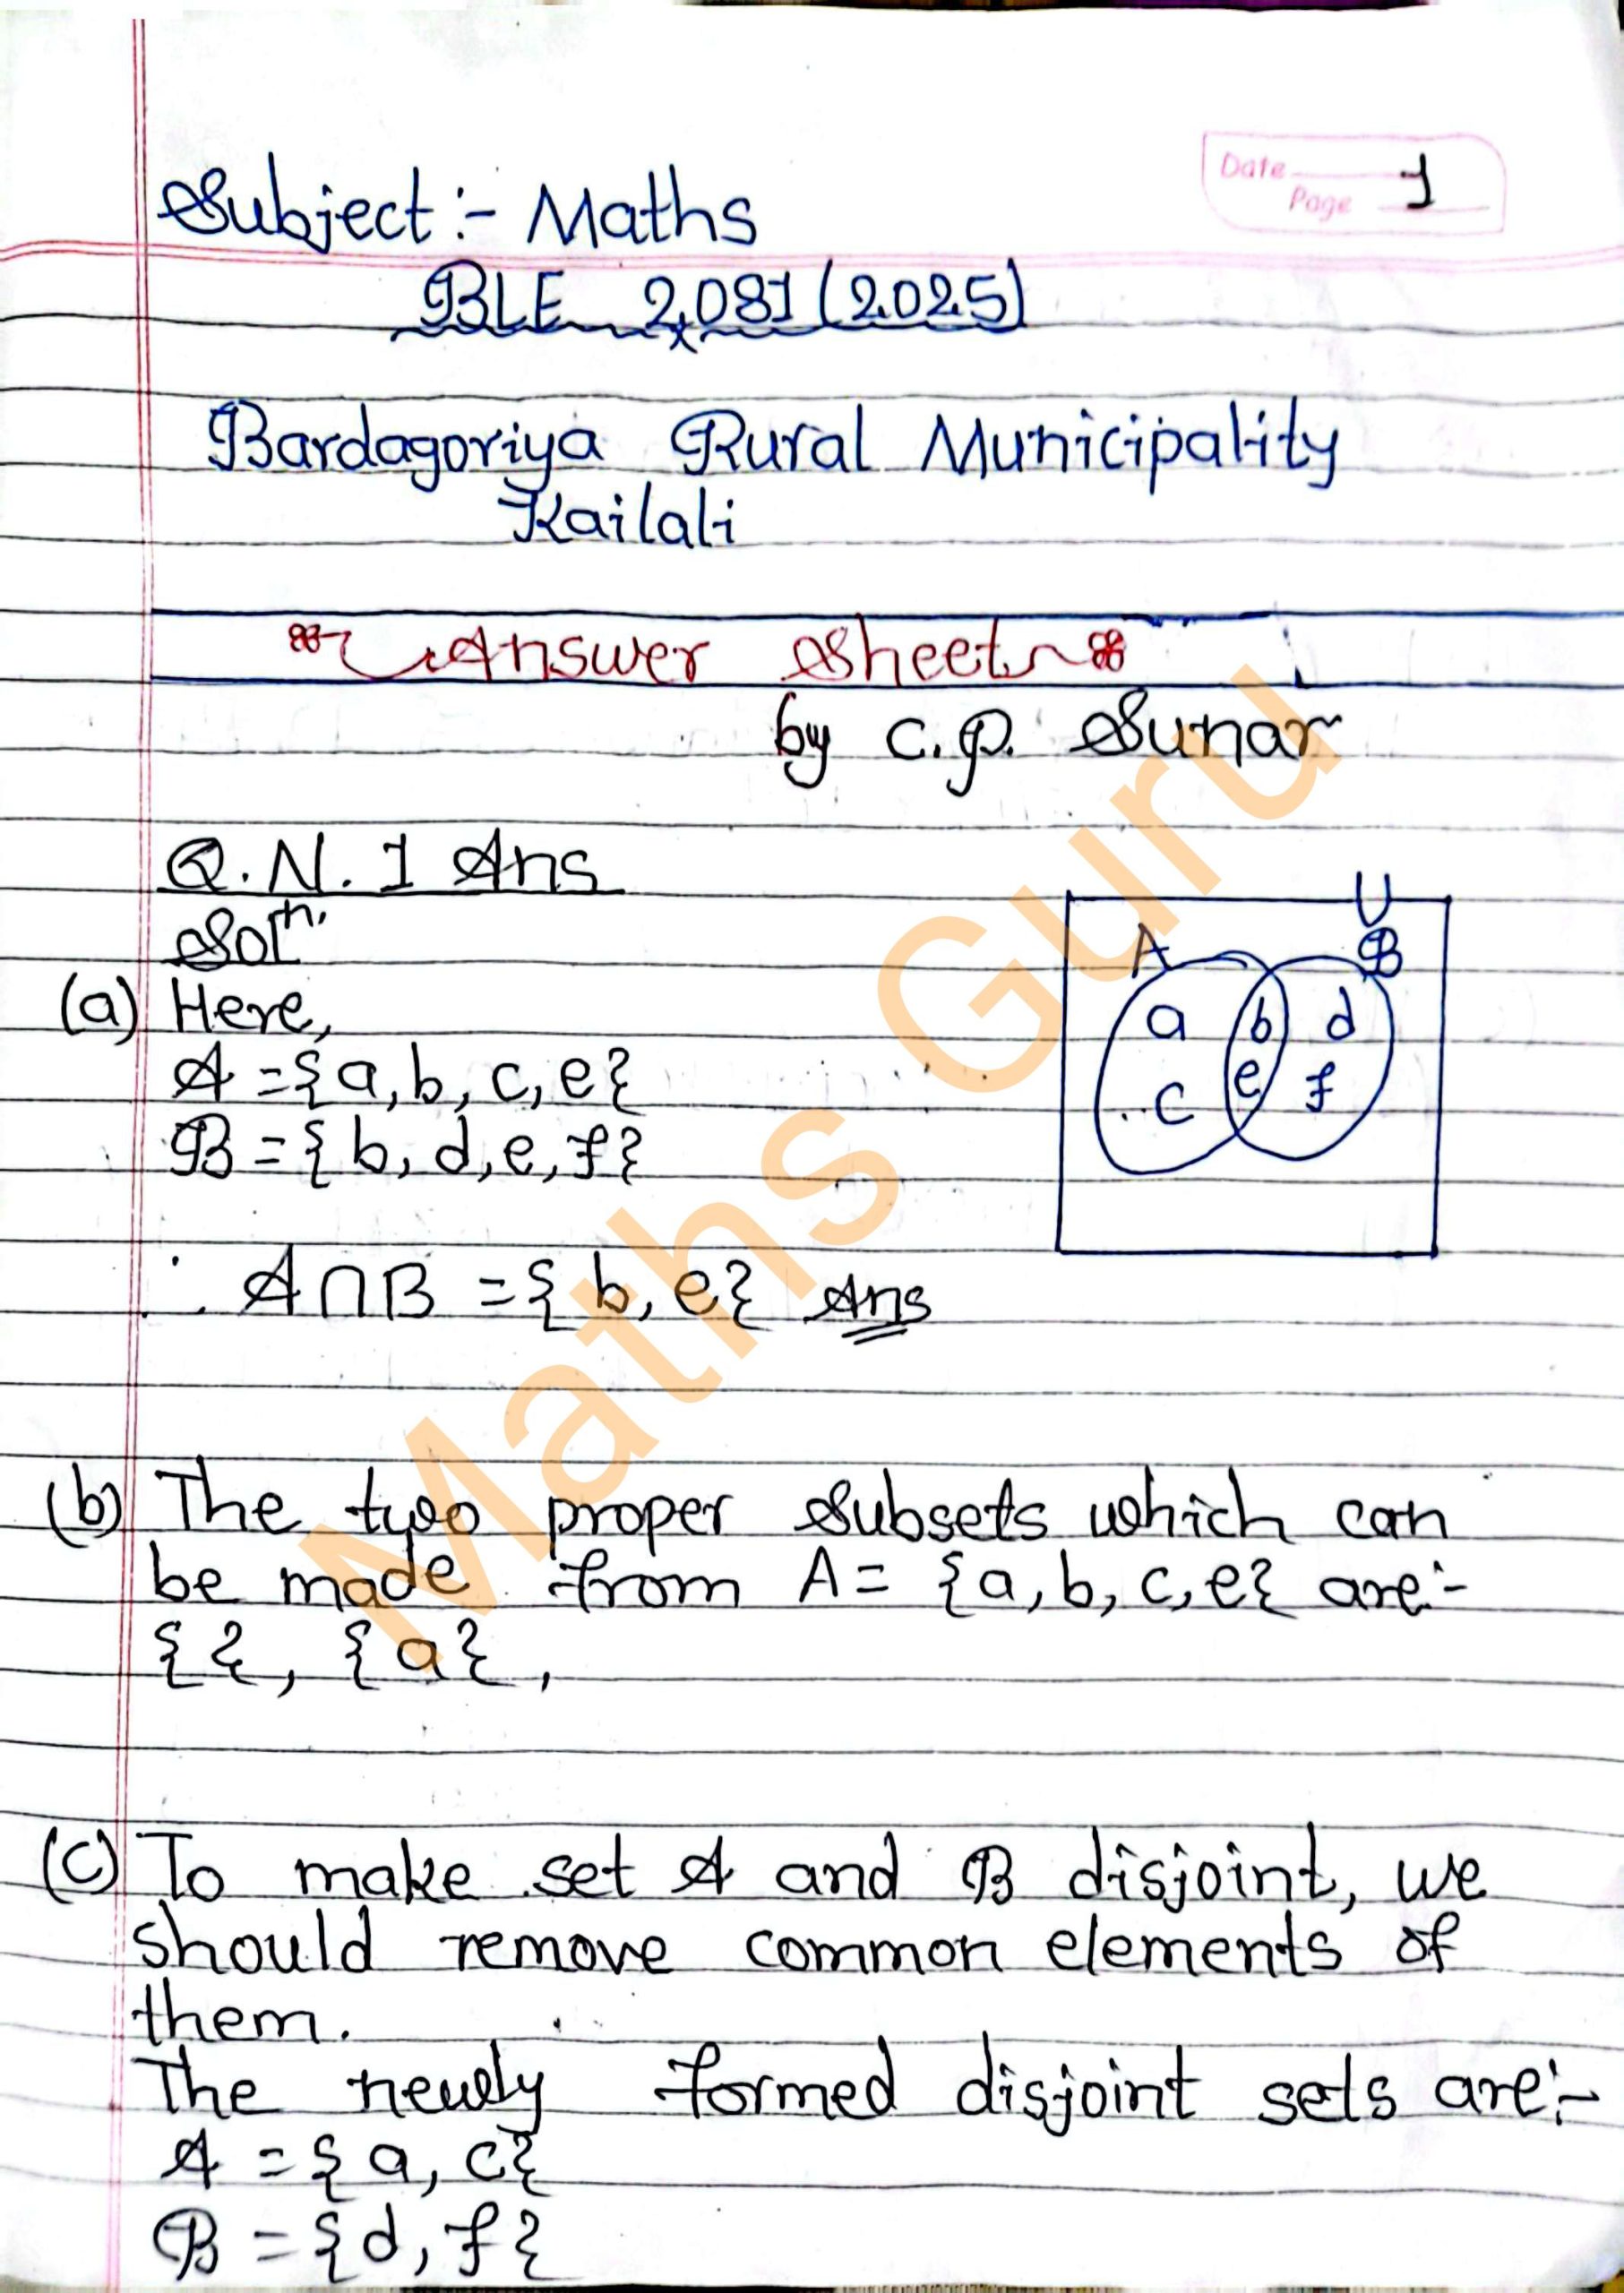 Date
Page 1
Subject:- Maths
BLE 2081 (2025)
Bardagoriya Rural Municipality
Kailali
Answer Sheet
by C.P. Sunar
Q.N. 1 Ans
Solⁿ.
(a) Here,
A = {a, b, c, e}
B = {b, d, e, f}
∴ A∩B = {b, e} Ans
U
A B
a b d
c e f
(b) The two proper subsets which can
be made from A = {a, b, c, e} are:-
{ }, {a},
(c) To make set A and B disjoint, we
should remove common elements of
them.
The newly formed disjoint sets are:-
A = {a, c}
B = {d, f}
Maths Guru